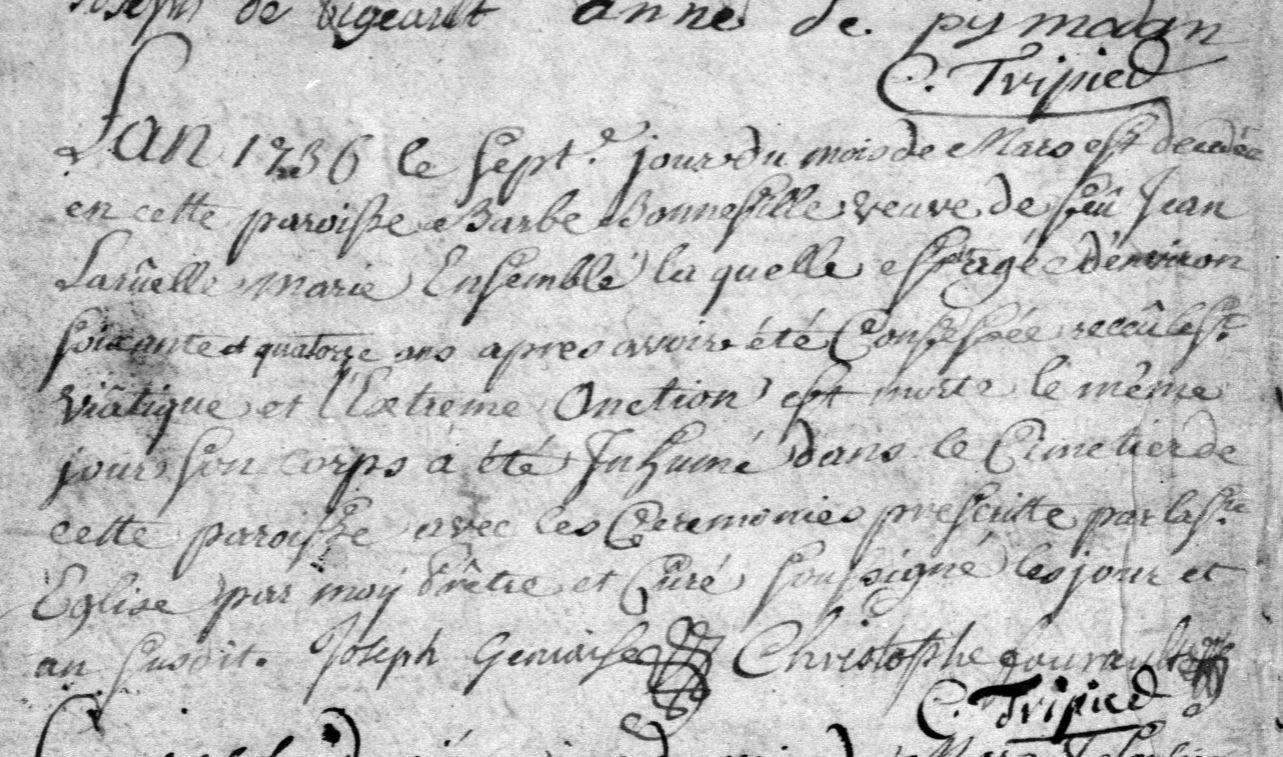 Joseph de bigeault anne de pymodan
C. Tripied
L'an 1736 le sept.e jour du mois de Mars est decedée
en cette paroisse Barbe Bonnefille veuve de feû Jean
Laruelle marie Ensemble la quelle est agée d'environ
soixante et quatorze ans apres avoir été Confessée reccû le st.
viâtique et l'Extreme Onction est morte le même
jour son corps a été Inhumé dans le Cimetier de
cette paroisse avec les Ceremonies prescritte par la ste.
Eglise par moÿ Prêtre et Curé soussigné les jour et
an susdit. Joseph Gervaise Christophe
C. Tripied